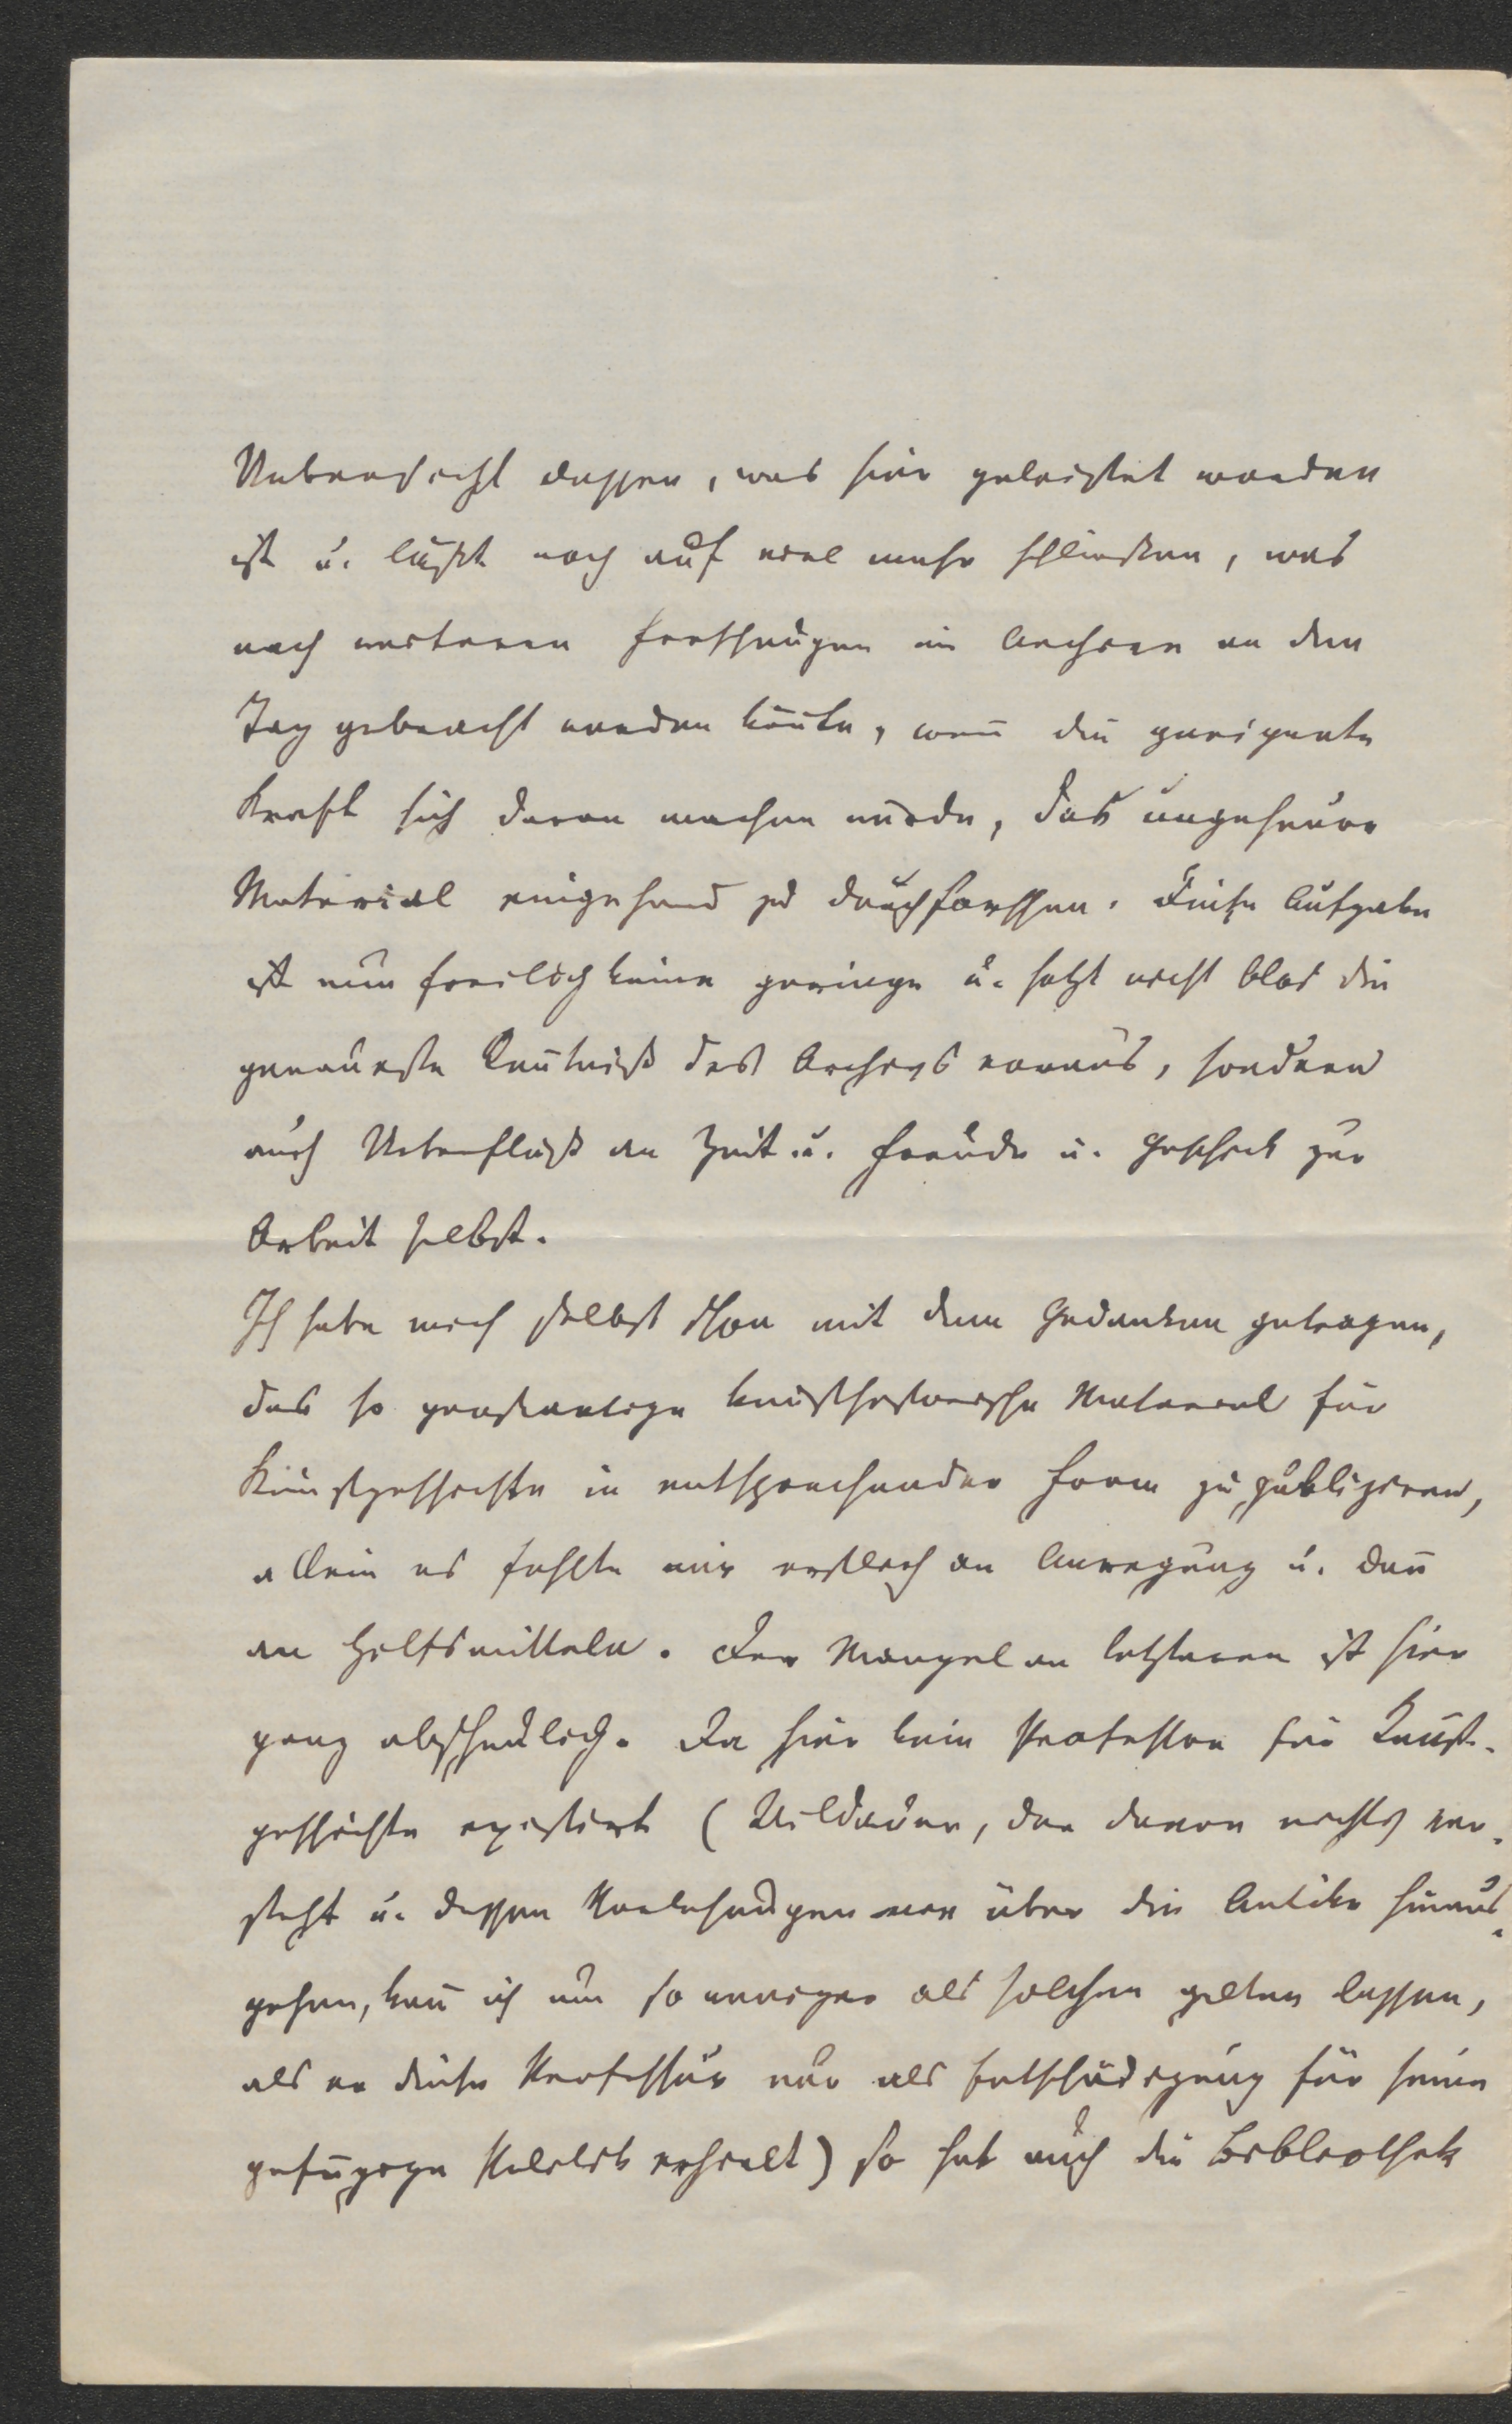 Uebersicht dessen, was hier geleistet worden
ist u. läßt noch auf viel mehr schließen, was
nach weiteren Forschungen im Archive an den
Tag gebracht werden kön̄te, wen̄ die geeignete
Kraft sich daran machen würde, das ungeheure
Material eingehend zu durchforschen. Diese Aufgabe
ist nun freilich keine geringe u. setzt nicht blos die
genaueste Ken̄tniß des Archivs voraus, sondern
auch Ueberfluß an Zeit u. Freude u. Geschick zur
Arbeit selbst.
Ich habe mich selbst schon mit dem Gedanken getragen,
das so großartige kunsthistorische Material für
Kunstgeschichte in entsprechender Form zu publiziren,
allein es fehlte mir erstlich an Anregung u. dan̄
an Hilfsmitteln. Der Mangel an letzteren ist hier
ganz abscheulich. Da hier kein Professor für Kunst-
geschichte existirt (Wildauer, der davon nichts ver-
steht u. dessen Vorlesungen nie über die Antike hinaus-
gehen, kan̄ ich um so weniger als solchen gelten lassen,
als er diese Professur nur als Entschädigung für seine
Politik erhielt) so hat auch die Bibliothek